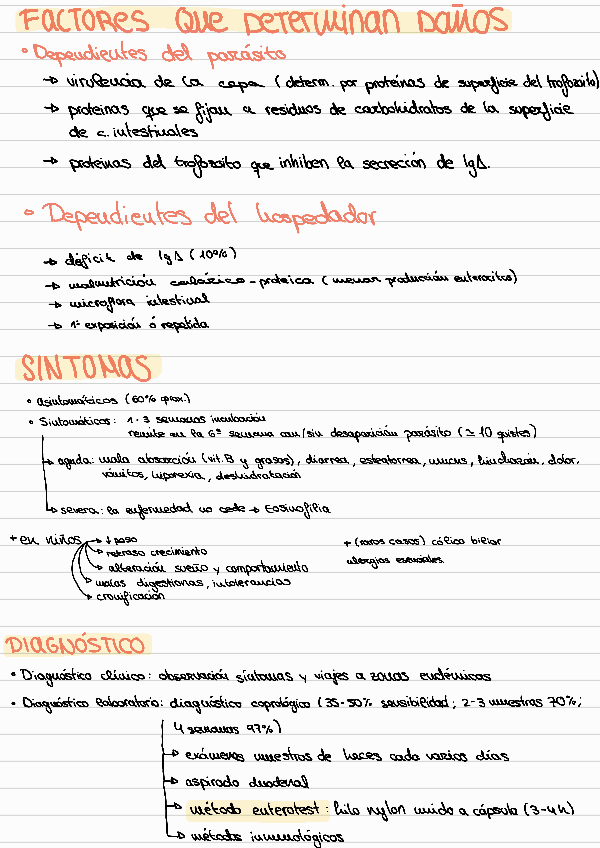 FACTORES QUE DETERMINAN DAÑOS
• Dependientes del parásito
→ virulencia de la cepa (determ. por proteínas de superficie del trofozoíto)
→ proteínas que se fijan a residuos de carbohidratos de la superficie
de c. intestinales
→ proteínas del trofozoito que inhiben la secreción de IgA.
• Dependientes del hospedador
→ déficit de IgA (10%)
→ malnutrición calórico-proteica (menor producción enterocitos)
→ microflora intestinal
→ 1ª exposición ó repetida
SINTOMAS
• Asintomáticos (60% aprox.)
• Sintomáticos: 1-3 semanas incubación
remite en la 6ª semana con/sin desaparición parásito (≃ 10 quistes)
→ aguda: mala absorción (vit. B y grasas), diarrea, esteatorrea, mucus, hinchazón, dolor,
vómitos, hiporexia, deshidratación
→ severa: la enfermedad no cede → Eosinofilia
+ en niños → ↓ peso
→ retraso crecimiento
→ alteración sueño y comportamiento
→ malas digestiones, intolerancias
→ cronificación
+ (raros casos) cólico biliar
alergias esenciales.
DIAGNÓSTICO
• Diagnóstico clínico: observación síntomas y viajes a zonas endémicas
• Diagnóstico laboratorio: diagnóstico coprológico (35-50% sensibilidad; 2-3 muestras 70%;
4 semanas 97%)
→ exámenes muestras de heces cada varios días
→ aspirado duodenal
→ método enterotest: hilo nylon unido a cápsula (3-4h)
→ métodos inmunológicos